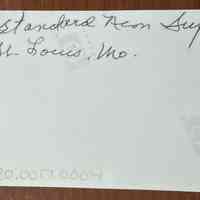 Standard Neon Sup
St. Louis, Mo.
20.0017.0004